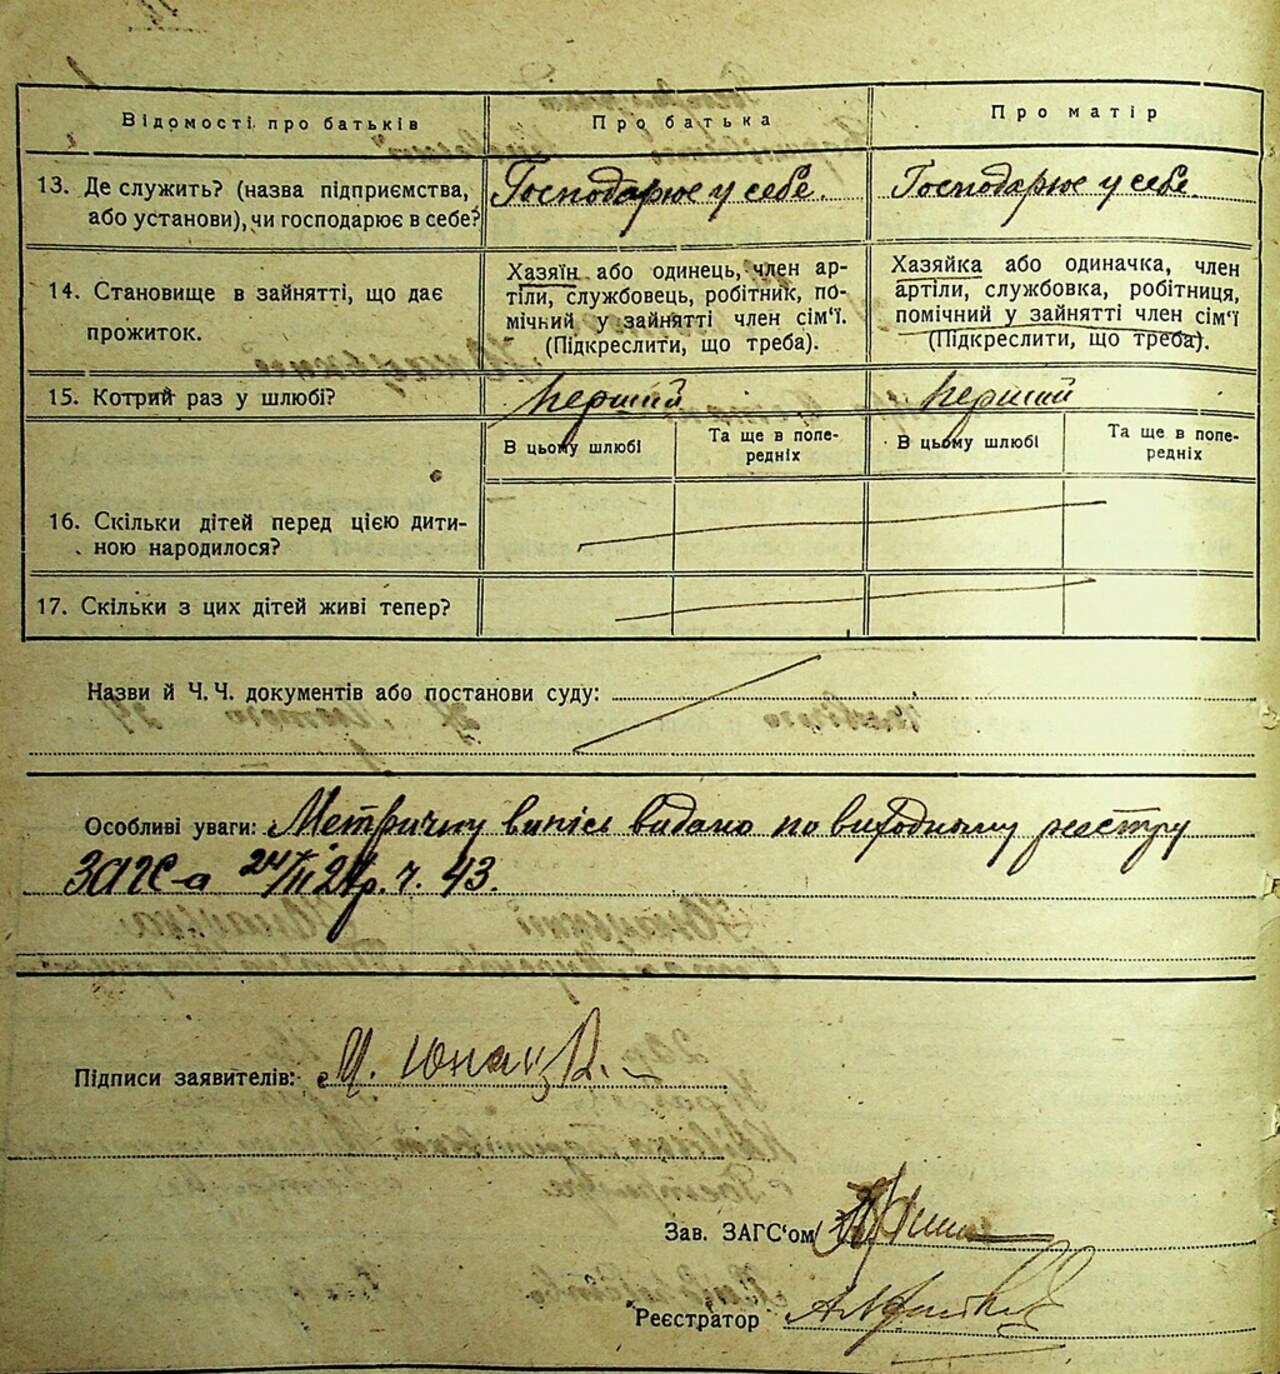 Відомості про батьків
Про батька
Про матір
13. Де служить? (назва підприємства,
або установи), чи господарює в себе?
Господарює у себе.
Господарює у себе.
14. Становище в зайнятті, що дає
прожиток.
Хазяїн або одинець, член ар-
тіли, службовець, робітник, по-
мічний у зайнятті член сім‘ї.
(Підкреслити, що треба).
Хазяйка або одиначка, член
артіли, службовка, робітниця,
помічний у зайнятті член сім‘ї
(Підкреслити, що треба).
15. Котрий раз у шлюбі?
перший
перший
В цьому шлюбі
Та ще в попе-
редніх
В цьому шлюбі
Та ще в попе-
редніх
16. Скільки дітей перед цією дити-
ною народилося?
17. Скільки з цих дітей живі тепер?
Назви й Ч. Ч. документів або постанови суду:
Особливі уваги: Метричну випісь видано по виходному реєстру
ЗАГС-а 24/II 24р. ч. 43.
Підписи заявителів:
Зав. ЗАГС‘ом
Реєстратор